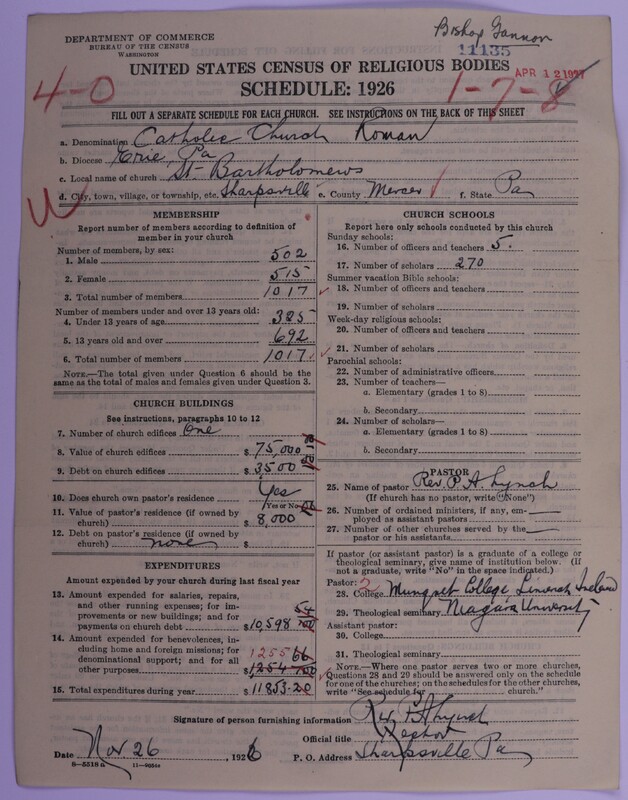 DEPARTMENT OF COMMERCE
BUREAU OF THE CENSUS
WASHINGTON
Bishop Gannon
11135
UNITED STATES CENSUS OF RELIGIOUS BODIES
APR 12 1927
SCHEDULE: 1926
4-0
1-7-8
FILL OUT A SEPARATE SCHEDULE FOR EACH CHURCH. SEE INSTRUCTIONS ON THE BACK OF THIS SHEET
a. Denomination Catholic Church Roman
b. Diocese Erie, Pa
c. Local name of church St- Bartholomews
d. City, town, village, or township, etc. Sharpsville e. County Mercer f. State Pa
MEMBERSHIP
Report number of members according to definition of member in your church
Number of members, by sex:
1. Male 502
2. Female 515
3. Total number of members 1017
Number of members under and over 13 years old:
4. Under 13 years of age 325
5. 13 years old and over 692
6. Total number of members 1017
NOTE.—The total given under Question 6 should be the same as the total of males and females given under Question 3.
CHURCH BUILDINGS
See instructions, paragraphs 10 to 12
7. Number of church edifices One
8. Value of church edifices $ 75,000
9. Debt on church edifices $ 3500
10. Does church own pastor's residence Yes
(Yes or No)
11. Value of pastor's residence (if owned by church) $ 8,000
12. Debt on pastor's residence (if owned by church) none $
EXPENDITURES
Amount expended by your church during last fiscal year
13. Amount expended for salaries, repairs, and other running expenses; for improvements or new buildings; and for payments on church debt $ 10,598 54
14. Amount expended for benevolences, including home and foreign missions; for denominational support; and for all other purposes 1255 66
$ 1254
15. Total expenditures during year $ 11853.20
CHURCH SCHOOLS
Report here only schools conducted by this church
Sunday schools:
16. Number of officers and teachers 5.
17. Number of scholars 270
Summer vacation Bible schools:
18. Number of officers and teachers
19. Number of scholars
Week-day religious schools:
20. Number of officers and teachers
21. Number of scholars
Parochial schools:
22. Number of administrative officers
23. Number of teachers—
a. Elementary (grades 1 to 8)
b. Secondary
24. Number of scholars—
a. Elementary (grades 1 to 8)
b. Secondary
PASTOR
25. Name of pastor Rev. P. A. Lynch
(If church has no pastor, write "None")
26. Number of ordained ministers, if any, employed as assistant pastors
27. Number of other churches served by the pastor or his assistants
If pastor (or assistant pastor) is a graduate of a college or theological seminary, give name of institution below. (If not a graduate, write "No" in the space indicated.)
Pastor: 2
28. College Mungret College, Limerick Ireland
29. Theological seminary Niagara University
Assistant pastor:
30. College
31. Theological seminary
NOTE.—Where one pastor serves two or more churches, Questions 28 and 29 should be answered only on the schedule for one of the churches; on the schedules for the other churches, write "See schedule for church."
Signature of person furnishing information Rev P A Lynch
Official title
Date Nov 26, 1926 P. O. Address Sharpsville Pa
8-5518 a